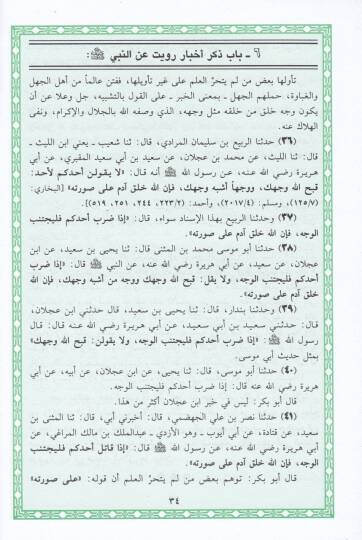 ٦ - باب ذكر أخبار رويت عن النبي ﷺ:
تأولها بعض من لم يتحرَّ العلم على غير تأويلها، ففتن عالماً من أهل الجهل
والغباوة، حملهم الجهل - بمعنى الخبر - على القول بالتشبيه، جل وعلا عن أن
يكون وجه خلق من خلقه مثل وجهه، الذي وصفه الله بالجلال والإكرام، ونفى
الهلاك عنه.
(٣٦) حدثنا الربيع بن سليمان المرادي، قال: ثنا شعيب - يعني ابن الليث -
قال: ثنا الليث، عن محمد بن عجلان، عن سعيد بن أبي سعيد المقبري، عن أبي
هريرة رضي الله عنه، عن رسول الله ﷺ أنه قال: «لا يقولن أحدكم لأحد:
قبح الله وجهك، ووجهاً أشبه وجهك، فإن الله خلق آدم على صورته» [البخاري:
(١٢٥/٧)، ومسلم: (٢٠١٧/٤)، وأحمد: (٢٢٣/٢، ٢٤٤، ٢٥١، ٥١٩)].
(٣٧) وحدثنا الربيع بهذا الإسناد سواء، قال: «إذا ضرب أحدكم فليجتنب
الوجه، فإن الله خلق آدم على صورته».
(٣٨) حدثنا أبو موسى محمد بن المثنى قال: ثنا يحيى بن سعيد، عن ابن
عجلان، عن سعيد، عن أبي هريرة رضي الله عنه، عن النبي ﷺ قال: «إذا ضرب
أحدكم فليجتنب الوجه، ولا يقل: قبح الله وجهك ووجه من أشبه وجهك، فإن الله
خلق آدم على صورته».
(٣٩) وحدثنا بندار، قال: ثنا يحيى بن سعيد، قال حدثني ابن عجلان،
قال: حدثني سعيد بن أبي سعيد، عن أبي هريرة رضي الله عنه قال: قال
رسول الله ﷺ: «إذا ضرب أحدكم فليجتنب الوجه، ولا يقولن: قبح الله وجهك»
بمثل حديث أبي موسى.
(٤٠) حدثنا أبو موسى، قال: ثنا يحيى، عن ابن عجلان، عن أبيه، عن أبي
هريرة رضي الله عنه قال: إذا ضرب أحدكم فليجتنب الوجه.
قال أبو بكر: ليس في خبر ابن عجلان أكثر من هذا.
(٤١) حدثنا نصر بن علي الجهضمي، قال: أخبرني أبي، قال: ثنا المثنى بن
سعيد، عن قتادة، عن أبي أيوب - وهو الأزدي - عبدالملك بن مالك المراغي، عن
أبي هريرة رضي الله عنه، عن رسول الله ﷺ قال: «إذا قاتل أحدكم فليجتنب
الوجه، فإن الله خلق آدم على صورته».
قال أبو بكر: توهم بعض من لم يتحرَّ العلم أن قوله: «على صورته»
٣٤